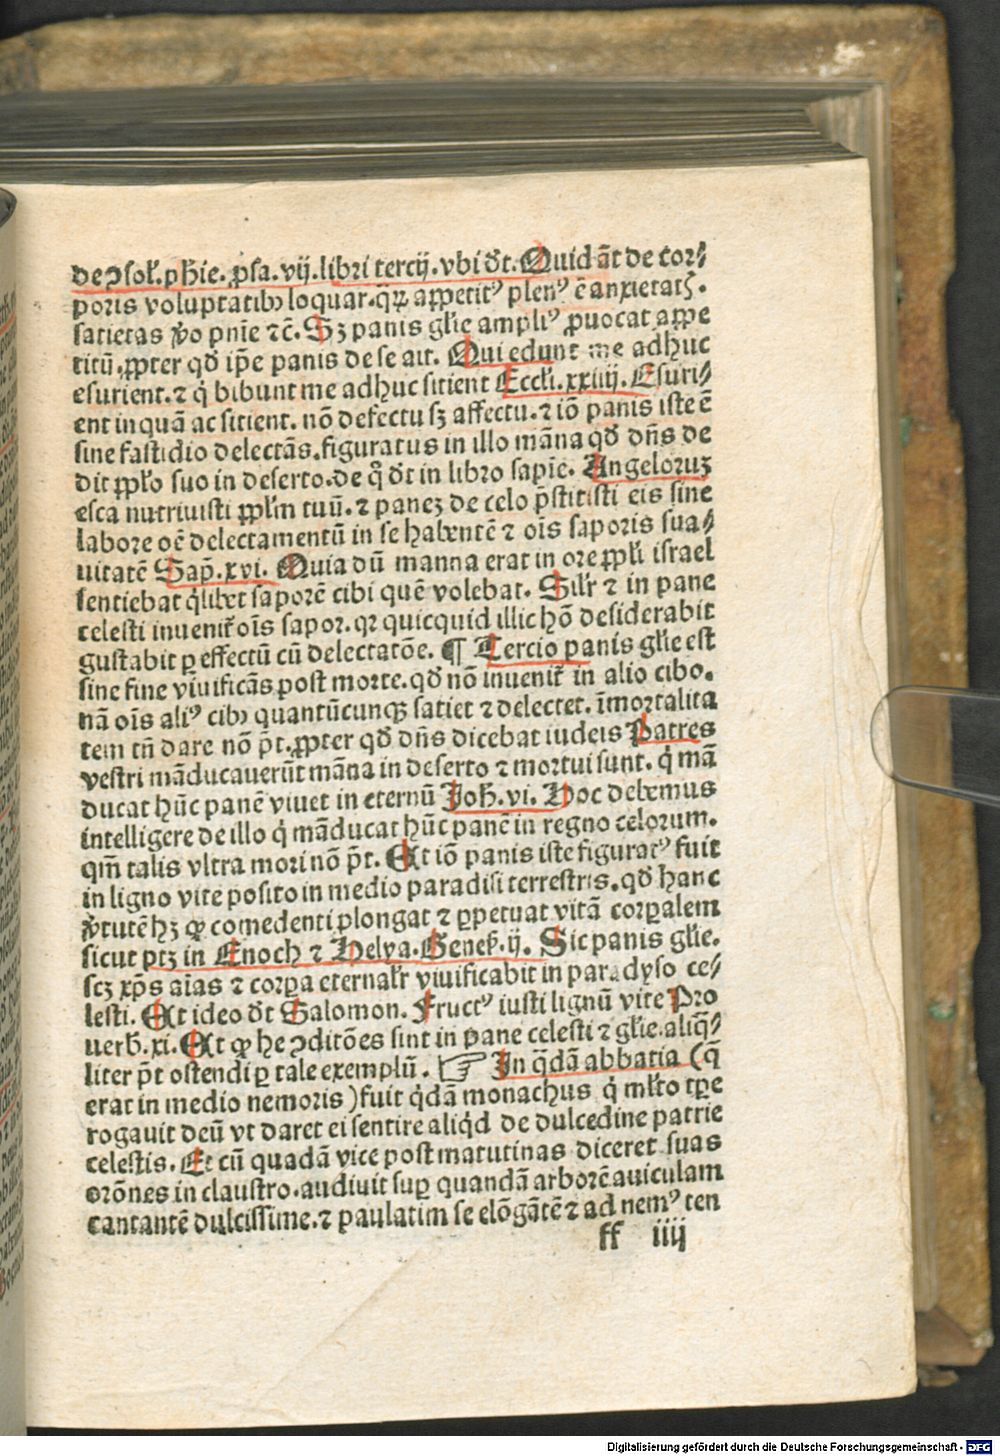 de ꝯsoł. phīe. ꝓsa. vij. libri tercij. vbi dt̄. Quid āt de cor⸗
poris voluptatibꝫ loquar. qꝝ appetitꝰ plenꝰ ē anxietatꝭ.
satietas ꝟo pnīe ⁊c̄. Sꝫ panis glīe ampliꝰ ꝓuocat appe
titū. ꝓpter qd̄ ip̄e panis de se ait. Qui edunt me adhuc
esurient. ⁊ q̇ bibunt me adhuc sitient Eccłi. xxiiij. Esuri⸗
ent inquā ac sitient. nō defectu sꝫ affectu. ⁊ iō panis iste ē
sine fastidio delectās. figuratus in illo māna qd̄ dn̄s de
dit ꝓpło suo in deserto. de q̊ dt̄ in libro sapīe. Angeloruꝫ
esca nutriuisti ꝓpłm tuū. ⁊ paneꝫ de celo p̄stitisti eis sine
labore oē delectamentū in se habentē ⁊ oīs saporis sua⸗
uitatē Sap̄. xvi. Quia dū manna erat in ore ꝓpłi israel
sentiebat q̇libet saporē cibi quē volebat. Silr̄ ⁊ in pane
celesti inuenit᷑ oīs sapor. qꝛ quicquid illic hō desiderabit
gustabit ꝑ effectū cū delectatōe. ¶ Tercio panis glīe est
sine fine viuificās post morte. qd̄ nō inuenit᷑ in alio cibo.
nā oīs aliꝰ cibꝰ quantūcunqꝫ satiet ⁊ delectet. īmortalita
tem tn̄ dare nō p̄t. ꝓpter qd̄ dn̄s dicebat iudeis Patres
vestri māducauerūt māna in deserto ⁊ mortui sunt. q̇ mā
ducat hūc panē viuet in eternū Joh̄. vi. Hoc debemus
intelligere de illo q̇ māducat hūc panē in regno celorum.
qm̄ talis vltra mori nō p̄t. Et iō panis iste figuratꝰ fuit
in ligno vite posito in medio paradisi terrestris. qd̄ hanc
ꝟtutē hꝫ ꝙ comedenti ꝓlongat ⁊ ꝑpetuat vitā corꝑalem
sicut ptꝫ in Enoch ⁊ Helya. Geneẜ. ij. Sic panis glīe.
scꝫ xp̄s aīas ⁊ corꝑa eternalr̄ viuificabit in paradyso ce⸗
lesti. Et ideo dt̄ Salomon. Fructꝰ iusti lignū vite Pro
uerb̄. xi. Et ꝙ he ꝯditōes sint in pane celesti ⁊ glīe. aliq̄⸗
liter p̄t ostendi ꝑ tale exemplū. ☞ In q̄dā abbatia (q̄
erat in medio nemoris) fuit q̇dā monachus q̇ młto tꝑe
rogauit deū vt daret ei sentire aliq̇d de dulcedine patrie
celestis. Et cū quadā vice post matutinas diceret suas
orōnes in claustro. audiuit suꝑ quandā arborē auiculam
cantantē dulcissime. ⁊ paulatim se elōgātē ⁊ ad nemꝰ ten
ff iiij
Digitalisierung gefördert durch die Deutsche Forschungsgemeinschaft - DFG